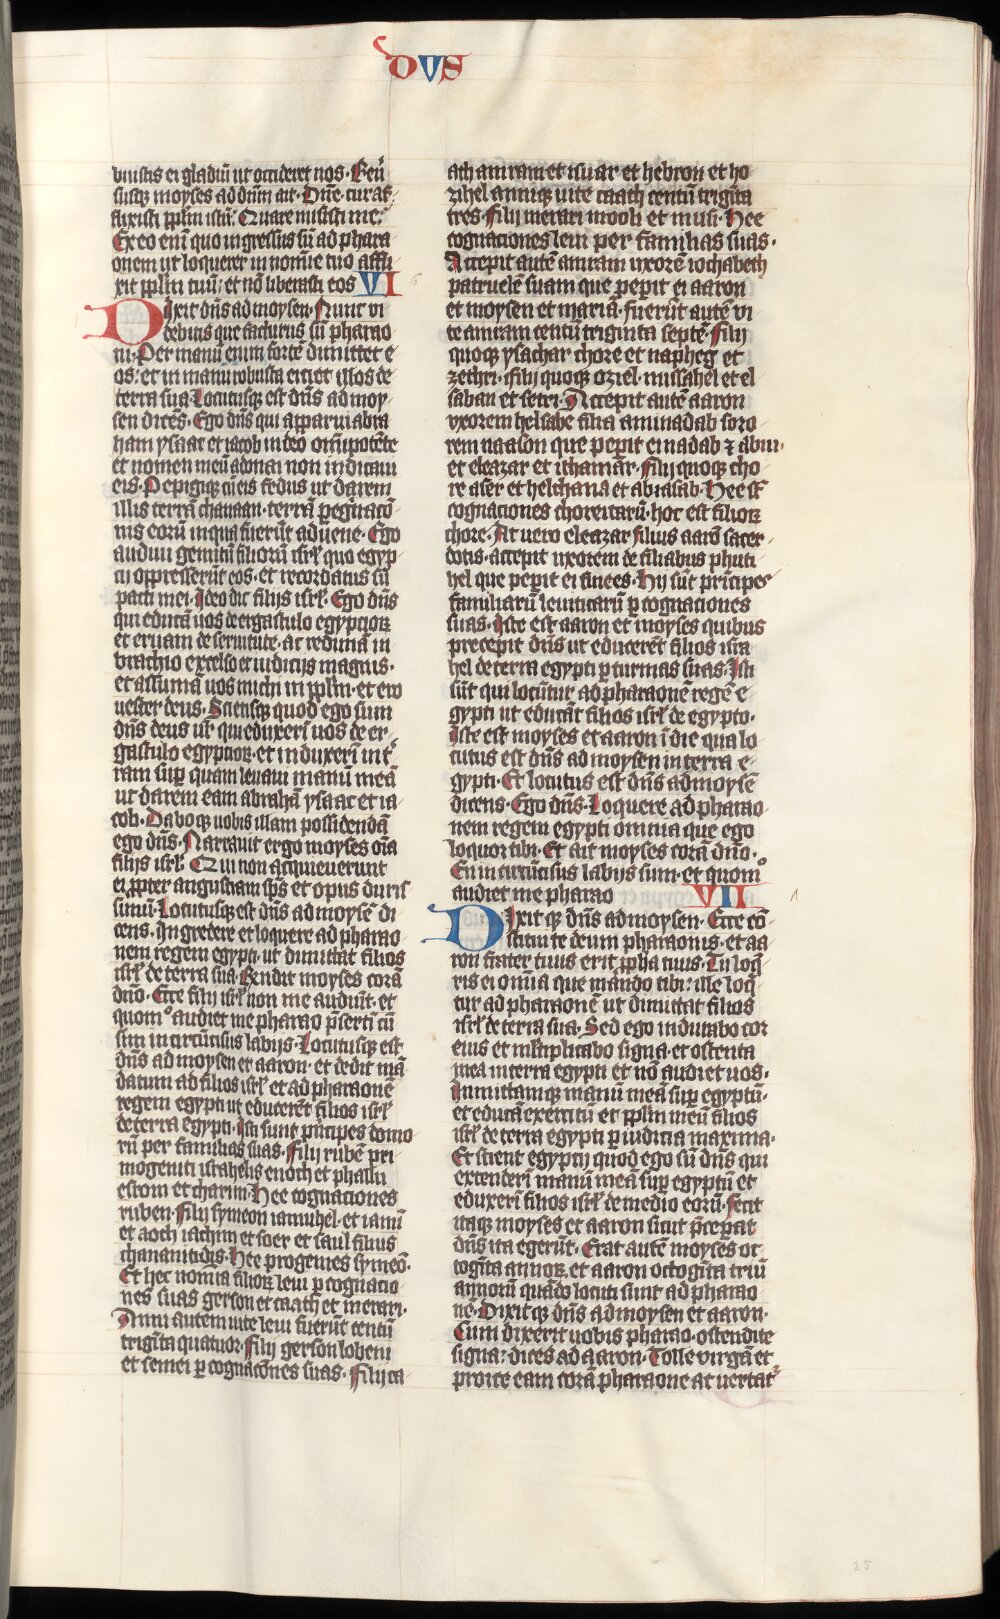 DVS
buistis ei gladiũ ut occideret nos. Reu̾
susq; moyses ad dñm ait. Dñe cur af
flixisti ppl̃m istũ. Quare misisti me.
Ex eo enĩ quo ingressus sũ ad phara
onem ut loquerer in nomĩe tuo affli
xit ppl̃m tuũ: et nõ liberasti eos VI
Dixit dñs ad moysen. Nunc vi
debitis que facturus sũ pharao
ni. Per manũ enim fortẽ dimittet e
os: et in manu robusta eiciet illos de
terra sua. Locutusq; est dñs ad moy
sen dicẽs. Ego dñs qui apparui abra
ham ysaac et iacob in deo om̃ipotẽte
et nomen meũ adonai non indicaui
eis. Pepigiq; cũ eis fedus ut darem
illis terrã chanaan. terrã pegrinacõ
nis eorũ in qua fuerũt aduene. Ego
audiui gemitũ filiorũ isrl̃ quo egyp
cij oppresserũt eos. et recordatus sũ
pacti mei. Ideo dic filijs isrl̃. Ego dñs
qui educã uos de ergastulo egypcioꝝ
et eruam de seruitute. ac redimã in
brachio excelso et iudicijs magnis.
et assumã uos michi in ppl̃m. et ero
uester deus. Scietisq; quod ego sum
dñs deus ur̃ qui eduxeri uos de er
gastulo egypcioꝝ. et induxerĩ in t̾
ram sup quam leuaui manũ meã
ut darem eam abrahã ysaac et ia
cob. Daboq; uobis illam possidendã
ego dñs. Narrauit ergo moyses oĩa
filijs isrl̃. Qui non acquieuerunt
ei ppter angustiam sp̃s et opus duris
simũ. Locutusq; est dñs ad moysẽ di
cens. Ingredere et loquere ad pharao
nem regem egypti. ut dimittat filios
isrl̃ de terra sua. Rñdit moyses corã
dño. Ecce filij isrl̃ non me audiũt. et
quom̊ audiet me pharao p̃sertĩ cũ
sim incircũcisus labijs. Locutusq; est
dñs ad moysen et aaron. et dedit mã
datum ad filios isrl̃ et ad pharaonẽ
regem egypti ut educerẽt filios isrl̃
de terra egypti. Isti sunt p̃ncipes domo
rũ per familias suas. Filij rubẽ pri
mogeniti israhelis enoch et phallu
esrom et charmi. Hee cognaciones
ruben. Filij symeon iamuhel. et iamĩ
et aoch iachim et soer et saul filius
chananitidis. Hee progenies symeõ.
Et hec nomĩa filioꝝ leui p cognacio
nes suas gerson et caath et merari.
Anni autem uite leui fuerũt centũ
trigĩta quatuor. Filij gerson lobeni
et semei p cognacões suas. Filij ca
ath amram et isuar et hebron et ho
zihel anniq; uite caath centũ trigĩta
tres. Filij merari mooli et musi. Hee
cognaciones leui per familias suas.
Accepit autẽ amram uxorẽ iochabeth
patruelẽ suam que peperit ei aaron
et moysen et mariã. fuerũt autẽ vi
te amram centũ triginta septẽ. Filij
quoq; ysachar chore et napheg et
zechri. filij quoq; oziel. missahel et el
saban et setri. Accepit autẽ aaron
vxorem helsabe filiã aminadab soro
rem naason que pepit ei nadab ⁊ abiu.
et eleazar et ithamar. Filij quoq; cho
re aser et helchana et abiasab. Hee sũt
cognaciones choreitarũ. hoc est filioꝝ
chore. At uero eleazar filius aarõ sacer
dotis. accepit uxorem de filiabus phuti
hel que pepit ei finees. Hij sũt prĩcipes
familiarũ leuiticarũ p cognaciones
suas. Iste est aaron et moyses quibus
precepit dñs ut educerẽt filios isra
hel de terra egypti p turmas suas. Isti
sũt qui locũtur ad pharaonẽ regẽ e
gypti ut educãt filios isrl̃ de egypto.
Iste est moyses et aaron ĩ die qua lo
cutus est dñs ad moysen in terra e
gypti. Et locutus est dñs ad moysẽ
dicens. Ego dñs. Loquere ad pharao
nem regem egypti omnia que ego
loquor tibi. Et ait moyses corã dño.
En incircũcisus labijs sum. et quom̊
audiet me pharao VII
Dixit q; dñs ad moysen. Ecce cõ
stitui te deum pharaonis. et aa
ron frater tuus erit ppha tuus. Tu loq̃
ris ei omnia que mãdo tibi: ille loq̃
tur ad pharaonẽ ut dimittat filios
isrl̃ de terra sua. Sed ego indurabo cor
eius et mltiplicabo signa. et ostenta
mea in terra egypti et nõ audiet uos.
Inmittamq; manũ meã sup egyptũ.
et educã exercitũ et ppl̃m meũ filios
isrl̃ de terra egypti p iudicia maxima.
Et scient egyptij quod ego sũ dñs qui
extenderĩ manũ meã sup egyptũ et
eduxerĩ filios isrl̃ de medio eorũ. Fecit
itaq; moyses et aaron sicut p̃ceperat
dñs ita egerũt. Erat autẽ moyses oc
togĩta annoꝝ. et aaron octogĩta triũ
annorũ quãdo locuti sunt ad pharao
nẽ. Dixit q; dñs ad moysen et aaron.
Cum dixerit uobis pharao. ostendite
signa: dices ad aaron. Tolle virgã et
proice eam corã pharaone ac uertat̾
25